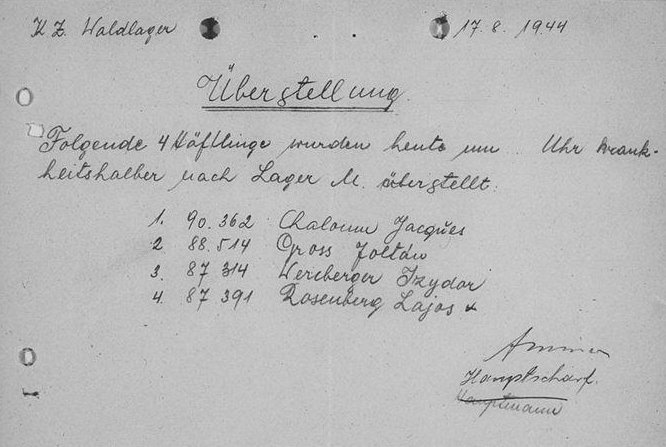 KZ. Waldlager 17.8.1944
Überstellung.
Folgende 4 Häftlinge wurden heute um Uhr krank-
heitshalber nach Lager M. überstellt:
1. 90.362 Jacques
2 88.514 Gross Zoltán
3. 87 314 Werberger Izydor
4. 87 391 Rosenberg Lajos x
Hauptscharf.
Hauptmann